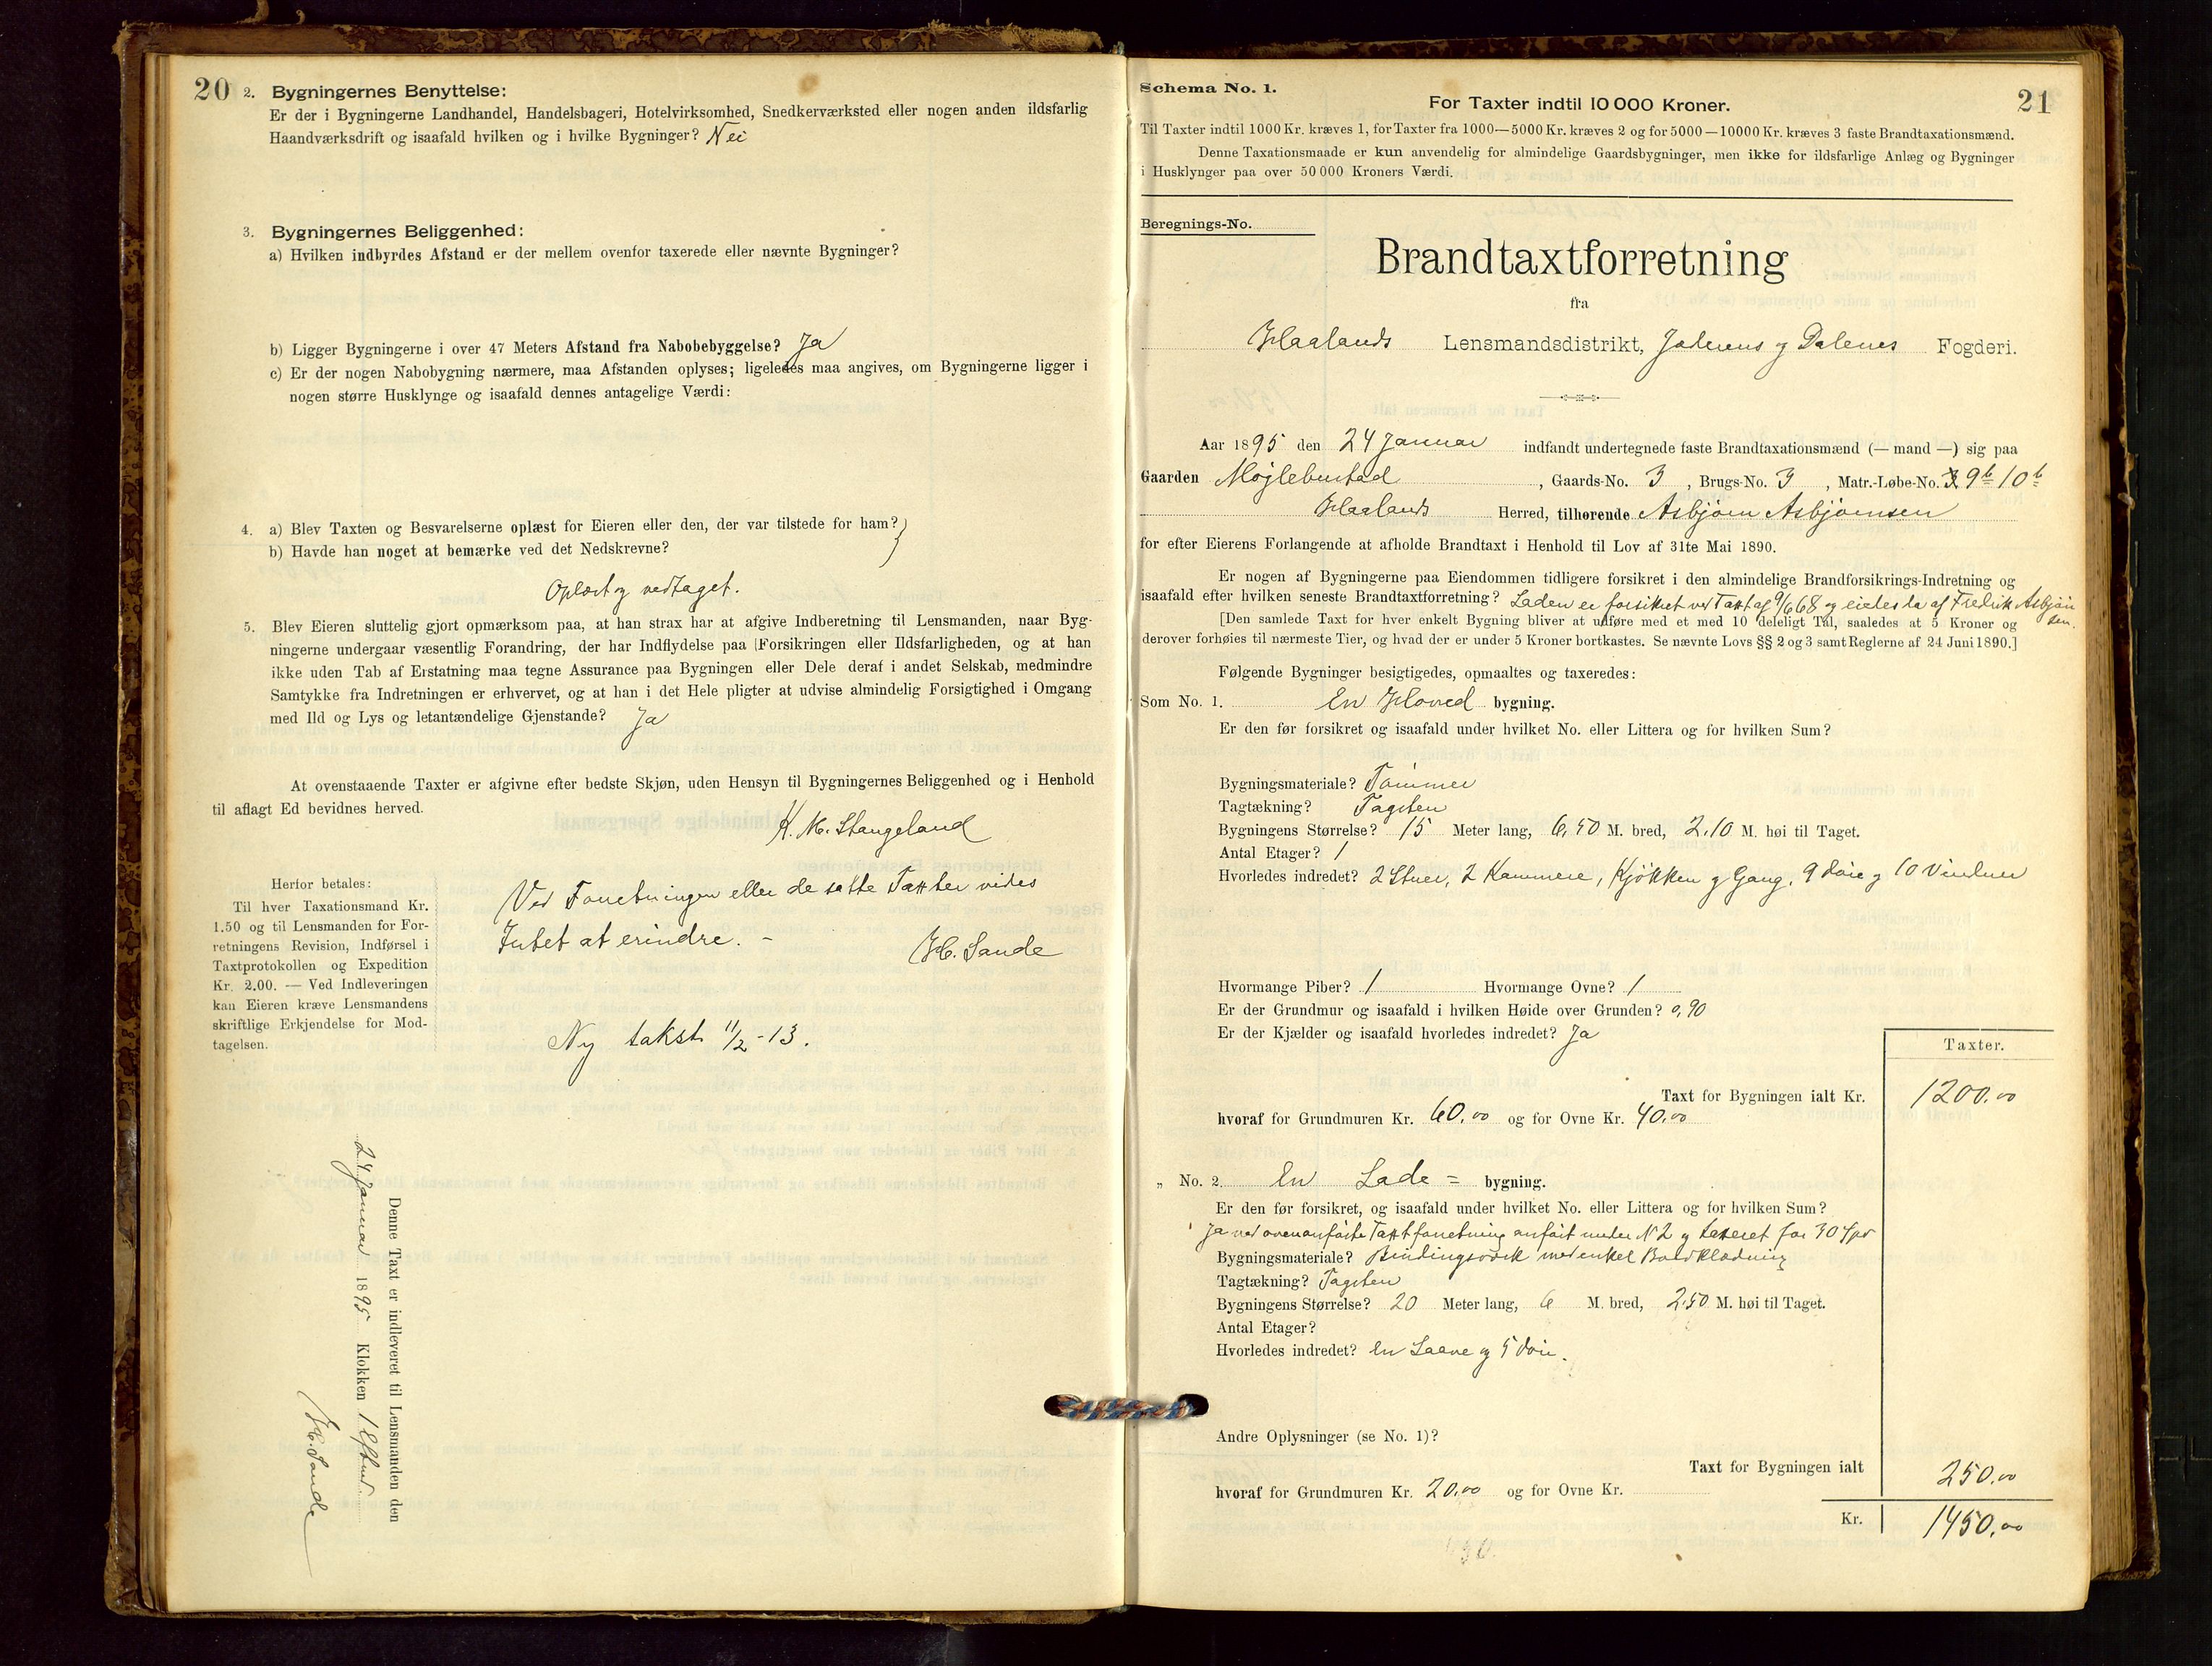 20
2. Bygningernes Benyttelse:
Er der i Bygningerne Landhandel, Handelsbageri, Hotelvirksomhed, Snedkerværksted eller nogen anden ildsfarlig
Haandværksdrift og isaafald hvilken og i hvilke Bygninger? Nei
3. Bygningernes Beliggenhed:
a) Hvilken indbyrdes Afstand er der mellem ovenfor taxerede eller nævnte Bygninger?
b) Ligger Bygningerne i over 47 Meters Afstand fra Nabobebyggelse? Ja
c) Er der nogen Nabobygning nærmere, maa Afstanden oplyses; ligeledes maa angives, om Bygningerne ligger i
nogen større Husklynge og isaafald dennes antagelige Værdi:
4. a) Blev Taxten og Besvarelserne oplæst for Eieren eller den, der var tilstede for ham?
b) Havde han noget at bemærke ved det Nedskrevne?
Oplæst og vedtaget.
5. Blev Eieren sluttelig gjort opmærksom paa, at han strax har at afgive Indberetning til Lensmanden, naar Byg-
ningerne undergaar væsentlig Forandring, der har Indflydelse paa Forsikringen eller Ildsfarligheden, og at han
ikke uden Tab af Erstatning maa tegne Assurance paa Bygningen eller Dele deraf i andet Selskab, medmindre
Samtykke fra Indretningen er erhvervet, og at han i det Hele pligter at udvise almindelig Forsigtighed i Omgang
med Ild og Lys og letantændelige Gjenstande? Ja
At ovenstaaende Taxter er afgivne efter bedste Skjøn, uden Hensyn til Bygningernes Beliggenhed og i Henhold
til aflagt Ed bevidnes herved.
K. M. Stangeland
Herfor betales:
Til hver Taxationsmand Kr.
1.50 og til Lensmanden for For-
retningens Revision, Indførsel i
Taxtprotokollen og Expedition
Kr. 2.00. — Ved Indleveringen
kan Eieren kræve Lensmandens
skriftlige Erkjendelse for Mod-
tagelsen.
Ved Forretningen eller de satte Taxter vides
Intet at erindre. -
H. Sande
Ny takst 11/2-13.
Denne Taxt er indleveret til Lensmanden den
24 Januar 1895 Klokken 1 Efterm.
H. Sande
21
Schema No. 1.
For Taxter indtil 10 000 Kroner.
Til Taxter indtil 1000 Kr. kræves 1, for Taxter fra 1000—5000 Kr. kræves 2 og for 5000—10000 Kr. kræves 3 faste Brandtaxationsmænd.
Denne Taxationsmaade er kun anvendelig for almindelige Gaardsbygninger, men ikke for ildsfarlige Anlæg og Bygninger
i Husklynger paa over 50 000 Kroners Værdi.
Beregnings-No.
Brandtaxtforretning
fra
Haalands Lensmandsdistrikt, Jæderens og Dalenes Fogderi.
Aar 1895 den 24 Januar indfandt undertegnede faste Brandtaxationsmænd (— mand —) sig paa
Gaarden Møglebustad, Gaards-No. 3, Brugs-No. 3, Matr.-Løbe-No. 9b 10b
Haalands Herred, tilhørende Asbjørn Asbjørnsen
for efter Eierens Forlangende at afholde Brandtaxt i Henhold til Lov af 31te Mai 1890.
Er nogen af Bygningerne paa Eiendommen tidligere forsikret i den almindelige Brandforsikrings-Indretning og
isaafald efter hvilken seneste Brandtaxtforretning? Laden er forsikret ved Taxt af 9/6 68 og eiedes da af Fredrik Asbjørn
sen.
[Den samlede Taxt for hver enkelt Bygning bliver at udføre med et med 10 deleligt Tal, saaledes at 5 Kroner og
derover forhøies til nærmeste Tier, og hvad der er under 5 Kroner bortkastes. Se nævnte Lovs §§ 2 og 3 samt Reglerne af 24 Juni 1890.]
Følgende Bygninger besigtigedes, opmaaltes og taxeredes:
Som No. 1. En Hoved bygning.
Er den før forsikret og isaafald under hvilket No. eller Littera og for hvilken Sum?
Bygningsmateriale? Tømmer
Tagtækning? Tagsten
Bygningens Størrelse? 15 Meter lang, 6,50 M. bred, 2,10 M. høi til Taget.
Antal Etager? 1
Hvorledes indredet? 2 Stuer, 2 Kammere, Kjøkken og Gang, 9 døre og 10 Vinduer
Hvormange Piber? 1 Hvormange Ovne? 1
Er der Grundmur og isaafald i hvilken Høide over Grunden? 0,90
Er der Kjælder og isaafald hvorledes indredet? Ja
Taxter.
Taxt for Bygningen ialt Kr. 1200.00
hvoraf for Grundmuren Kr. 60.00 og for Ovne Kr. 40.00
„ No. 2. En Lade = bygning.
Er den før forsikret, og isaafald under hvilket No. eller Littera og for hvilken Sum?
Ja ved ovenanførte Taxtforretning anført under N 2 og taxeret for 30 Spd
Bygningsmateriale? Bindingsværk med enkel Bordklædning
Tagtækning? Tagsten
Bygningens Størrelse? 20 Meter lang, 6 M. bred, 2,50 M. høi til Taget.
Antal Etager?
Hvorledes indredet? en Laave og 5 døre.
Andre Oplysninger (se No. 1)?
Taxt for Bygningen ialt 250.00
hvoraf for Grundmuren Kr. 20.00 og for Ovne Kr.
Kr. 1450.00